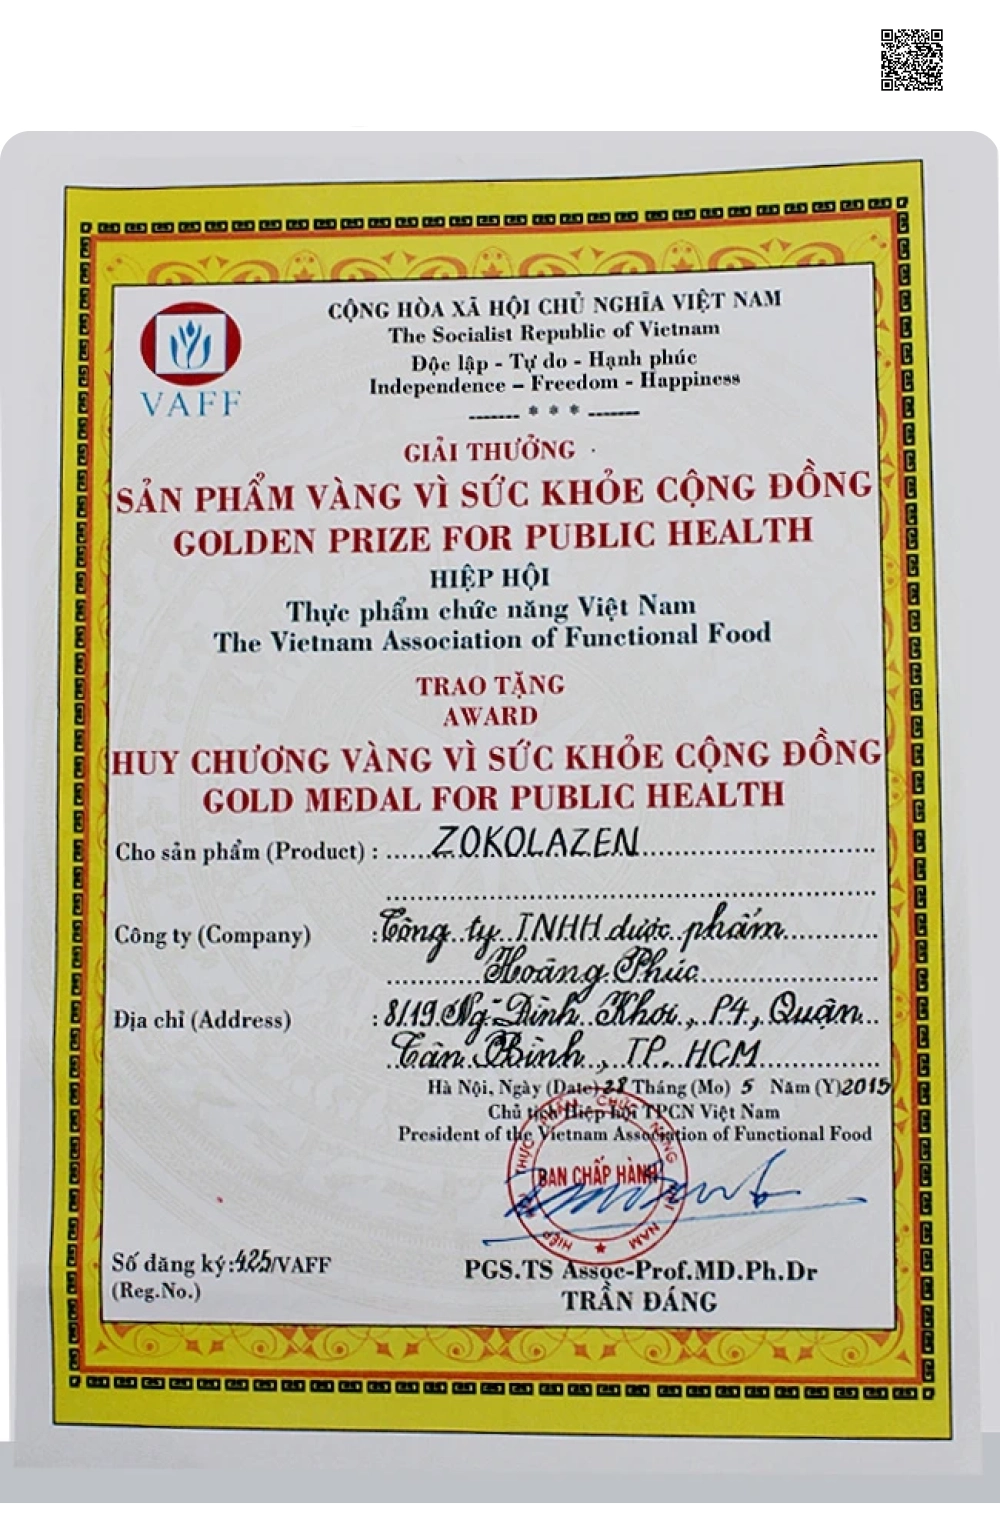 VAFF
CỘNG HÒA XÃ HỘI CHỦ NGHĨA VIỆT NAM
The Socialist Republic of Vietnam
Độc lập - Tự do - Hạnh phúc
Independence – Freedom - Happiness
------- * * * -------
GIẢI THƯỞNG
SẢN PHẨM VÀNG VÌ SỨC KHỎE CỘNG ĐỒNG
GOLDEN PRIZE FOR PUBLIC HEALTH
HIỆP HỘI
Thực phẩm chức năng Việt Nam
The Vietnam Association of Functional Food
TRAO TẶNG
AWARD
HUY CHƯƠNG VÀNG VÌ SỨC KHỎE CỘNG ĐỒNG
GOLD MEDAL FOR PUBLIC HEALTH
Cho sản phẩm (Product) : ZOKOLAZEN
Công ty (Company) : Công ty TNHH dược phẩm
Hoàng Phúc
Địa chỉ (Address) : 8/19 Ng- Đình Khơi, P4, Quận
Tân Bình, TP. HCM
Hà Nội, Ngày (Date) 28 Tháng (Mo) 5 Năm (Y) 2015
Chủ tịch Hiệp hội TPCN Việt Nam
President of the Vietnam Association of Functional Food
HIỆP HỘI THỰC PHẨM CHỨC NĂNG VIỆT NAM
BAN CHẤP HÀNH
Số đăng ký: 425/VAFF
(Reg.No.)
PGS.TS Assoc-Prof.MD.Ph.Dr
TRẦN ĐÁNG